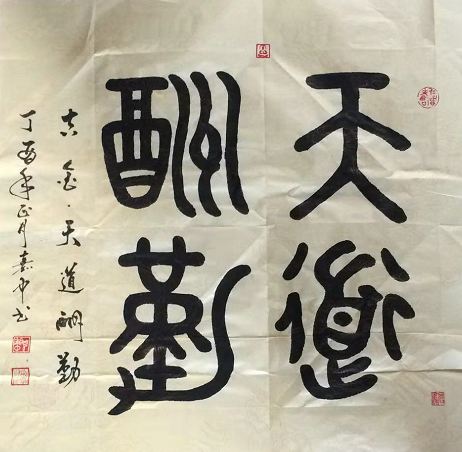 天道
酬勤
古金·天道酬勤
丁酉年正月嘉中书